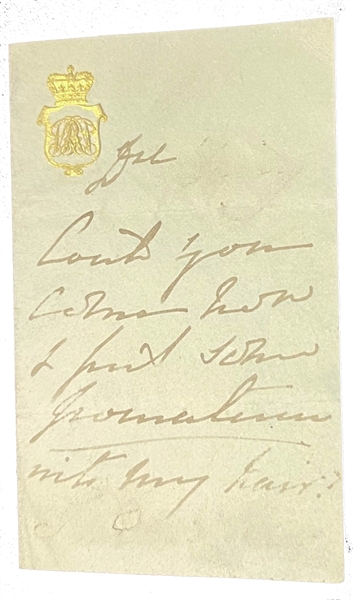 Could you
come now
& put some
pomatum
into my hair?